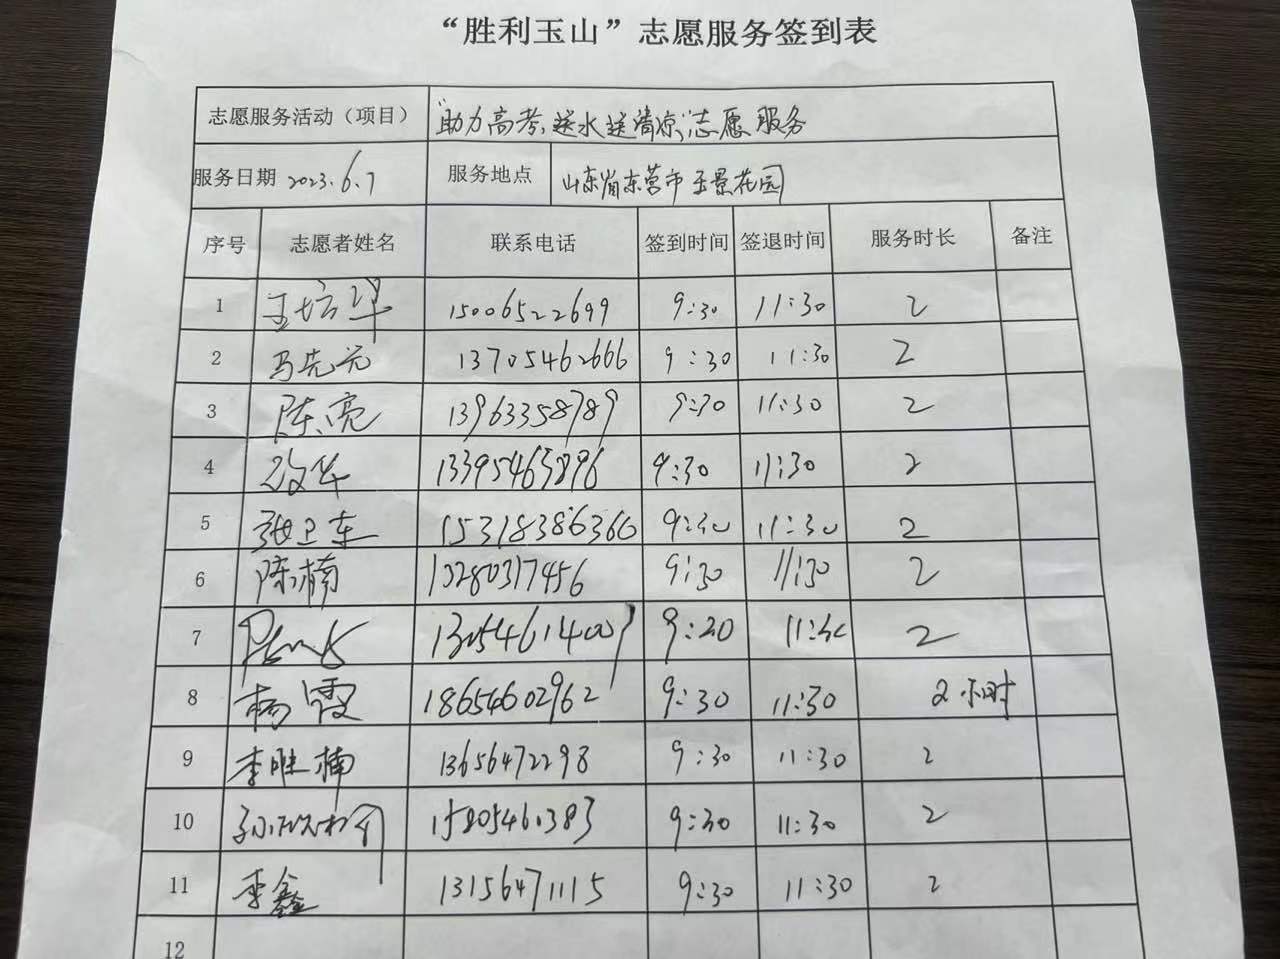 “胜利玉山”志愿服务签到表
志愿服务活动（项目） “助力高考、送水送清凉”志愿服务
服务日期 2023.6.7 服务地点 山东省东营市玉景花园
序号 志愿者姓名 联系电话 签到时间 签退时间 服务时长 备注
1 王培军 15006522699 9:30 11:30 2
2 马先元 13705462666 9:30 11:30 2
3 陈亮 13963358789 9:30 11:30 2
4 13395463896 9:30 11:30 2
5 张卫东 15318386366 9:30 11:30 2
6 陈楠 13280317456 9:30 11:30 2
7 13054614009 9:30 11:30 2
8 杨霞 18654602962 9:30 11:30 2小时
9 李胜楠 13656472298 9:30 11:30 2
10 15805461383 9:30 11:30 2
11 李鑫 13156471115 9:30 11:30 2
12